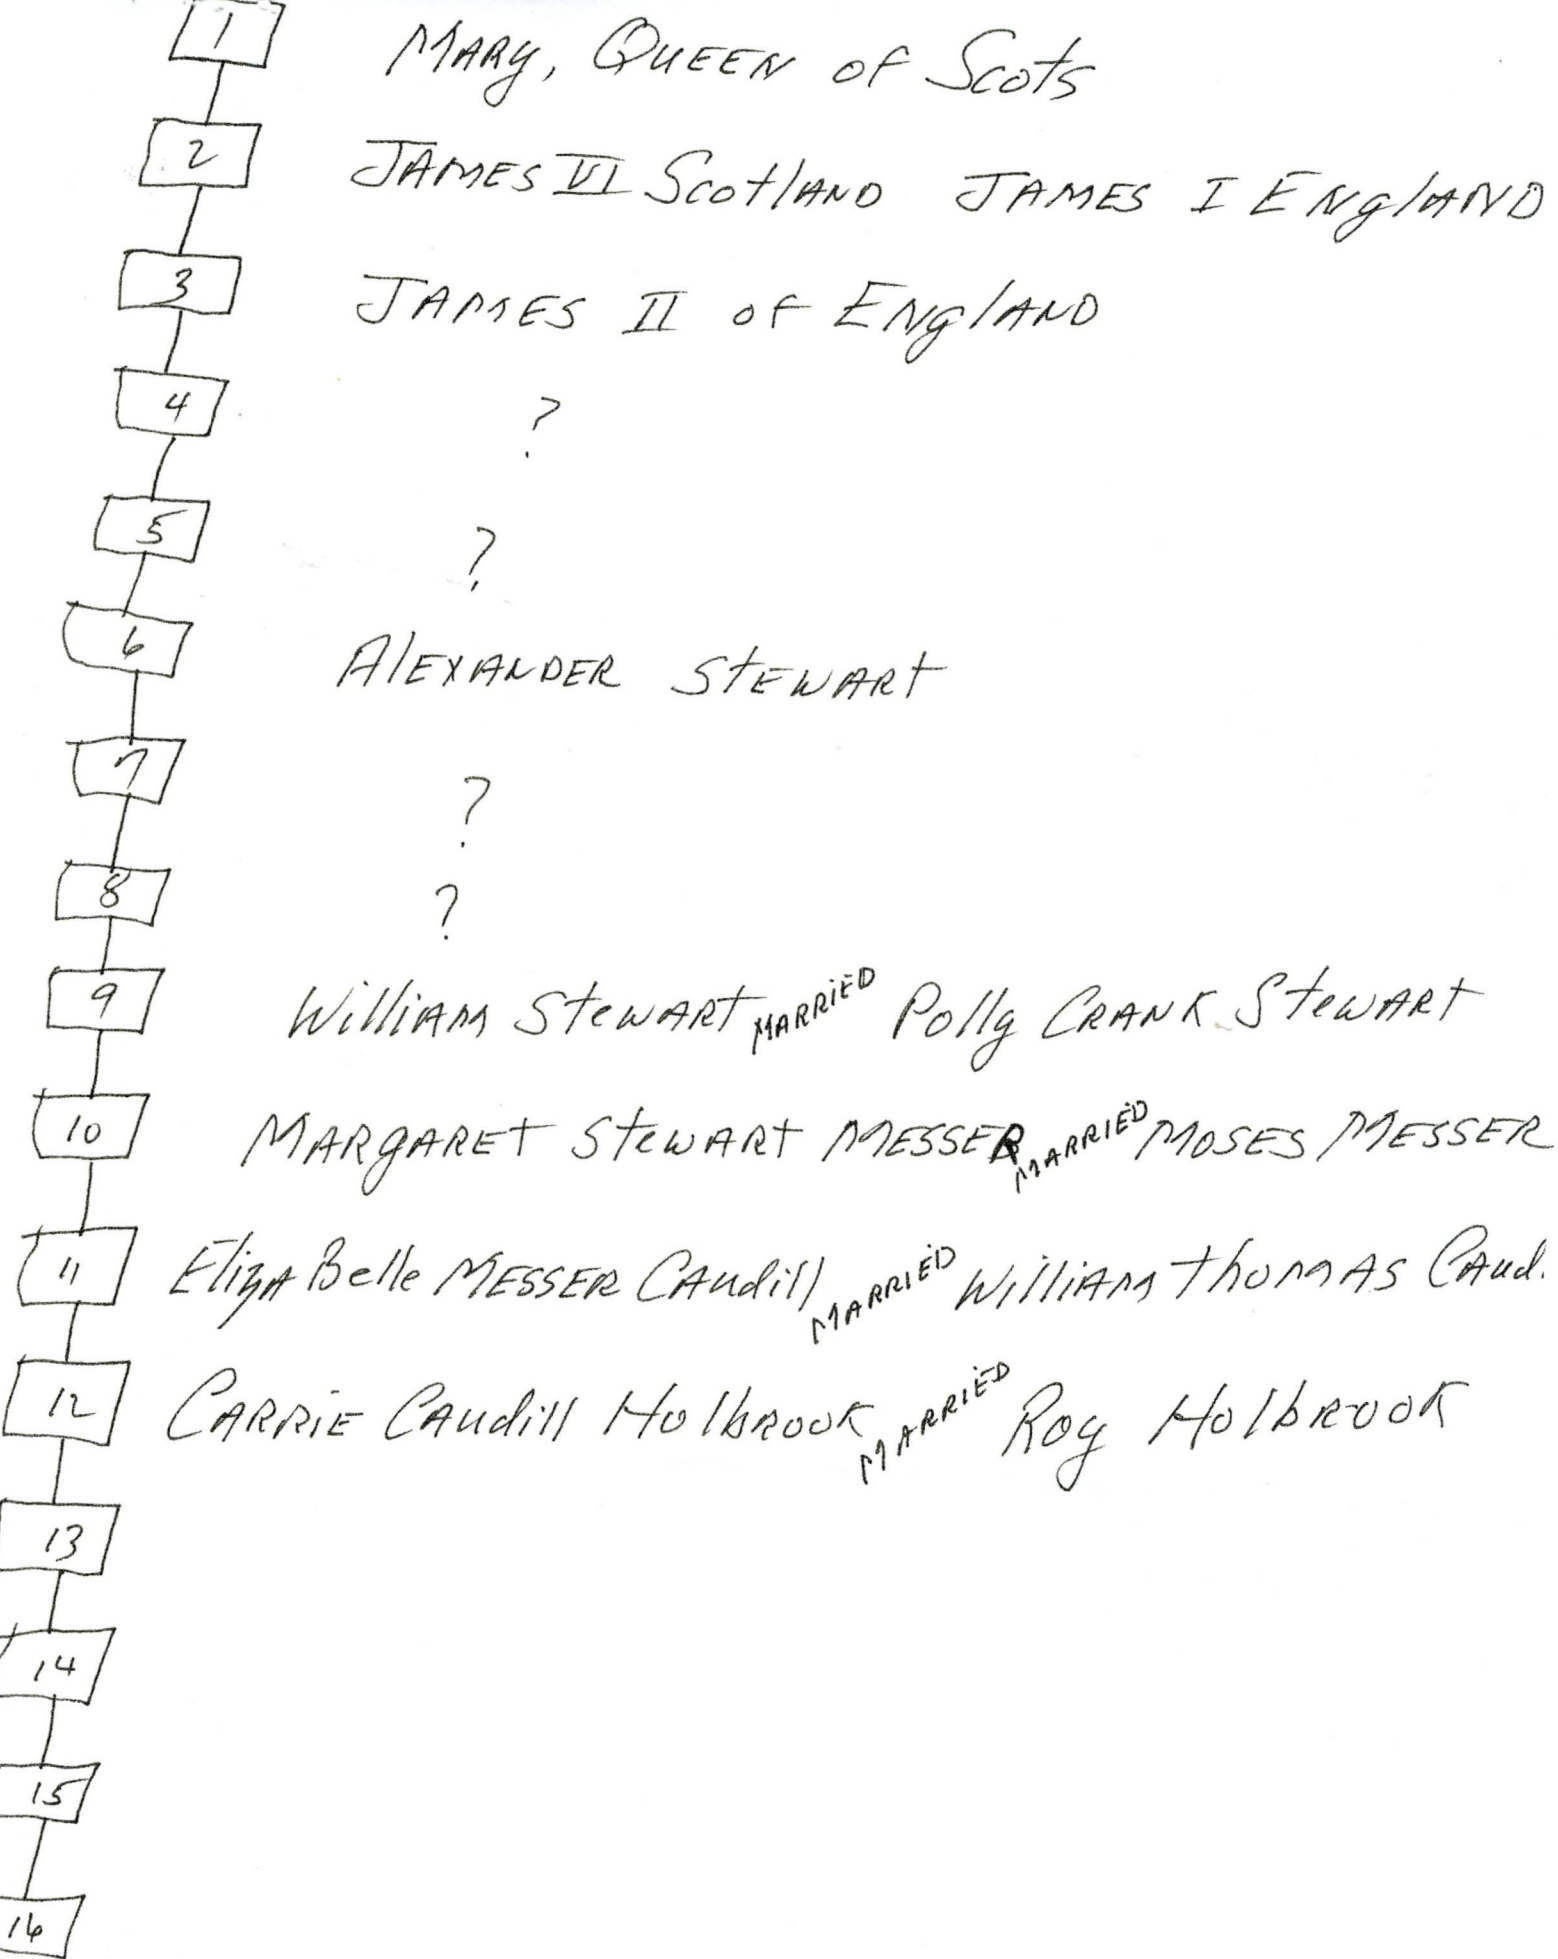 1 Mary, Queen of Scots
2 James VI Scotland James I England
3 James II of England
4 ?
5 ?
6 Alexander Stewart
7 ?
8 ?
9 William Stewart married Polly Crank Stewart
10 Margaret Stewart Messer married Moses Messer
11 Eliza Belle Messer Caudill married William Thomas Caud.
12 Carrie Caudill Holbrook married Roy Holbrook
13
14
15
16